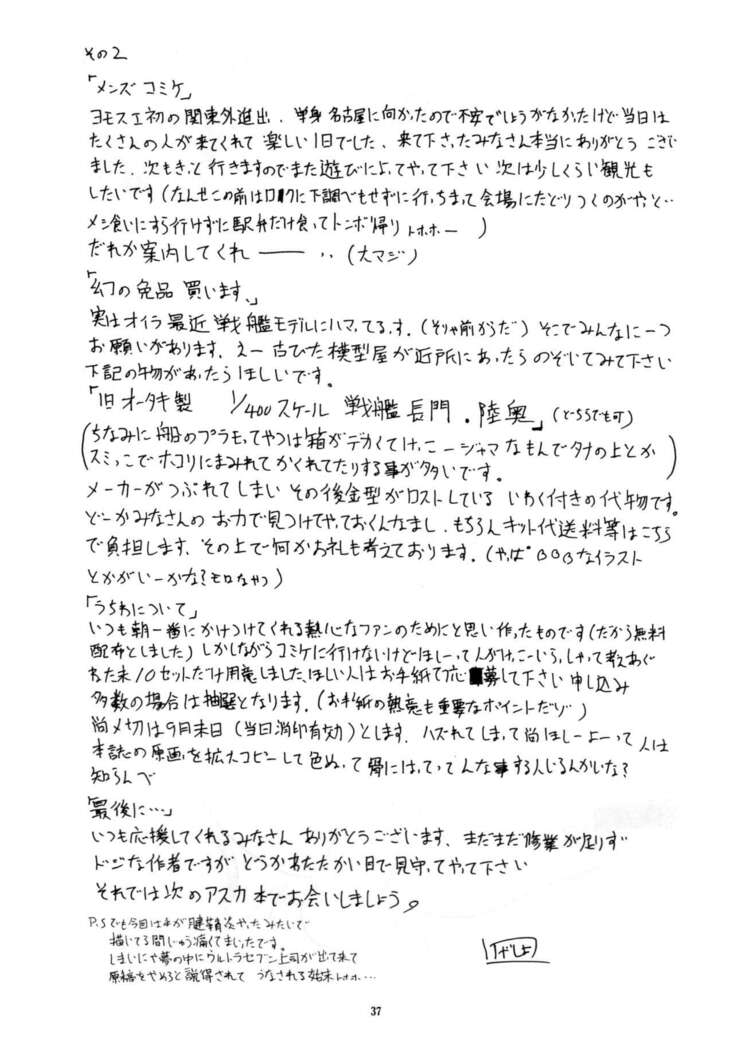 その2
「メンズコミケ」
ヨモスエ初の関東外進出、単身名古屋に向かったので不安でしょうがなかったけど当日は
たくさんの人が来てくれて楽しい1日でした、来て下さったみなさん本当にありがとうござい
ました、次もきっと行きますのでまた遊びによってやって下さい 次は少しくらい観光も
したいです(なんせこの前はロクに下調べもせずに行っちまって会場にたどりつくのがやっと‥
メシ食いにすら行けずに駅弁だけ食ってトンボ帰り トホホー )
だれか案内してくれ ―― ‥ (大マジ)
「幻の免品 買います、」
実はオイラ最近戦艦モデルにハマってるっす。(そりゃ前からだ) そこでみんなに一つ
お願いがあります、えー古びた模型屋が近所にあったらのぞいてみて下さい
下記の物があったらほしいです。
「旧オータキ製 1/400スケール 戦艦長門・陸奥」(どちらでも可)
(ちなみに船のプラモってやつは箱がデカくてけっこージャマなもんでタナの上とか
スミっこでホコリにまみれてかくれてたりする事が多いです。)
メーカーがつぶれてしまいその後金型がロストしている いわく付きの代物です。
どーかみなさんのお力で見つけてやっておくんなまし、もちろんキット代送料等はこちら
で負担します、その上で何かお礼も考えております。(やっぱ なイラスト
とかがいーかな?モロなやつ)
「うちわについて」
いつも朝一番にかけつけてくれる熱心なファンのためにと思い作ったものです(だから無料
配布としました)しかしながらコミケに行けないけどほしーって人がけっこーいらっしゃって考えあぐ
ねた末10セットだけ用意しました、ほしい人はお手紙で応募して下さい 申し込み
多数の場合は抽選となります。(お手紙の熱意も重要なポイントだゾ)
尚〆切は9月末日(当日消印有効)とします、ハズれてしまって尚ほしーよーって人は
本誌の原画を拡大コピーして色ぬって骨にはってってんな事する人いるんかいな?
知らんべ
「最後に…」
いつも応援してくれるみなさん ありがとうございます、まだまだ修業が足りず
ドジな作者ですがどうかあたたかい目で見守ってやって下さい
それでは次のアスカ本でお会いしましょう。
P.Sでも今回は手が腱鞘炎やったみたいで
描いてる間じゅう痛くてまいったです。
しまいにや夢の中にウルトラセブン上司が出て来て
原稿をやめろと説得されて うなされる始末トホホ…
37